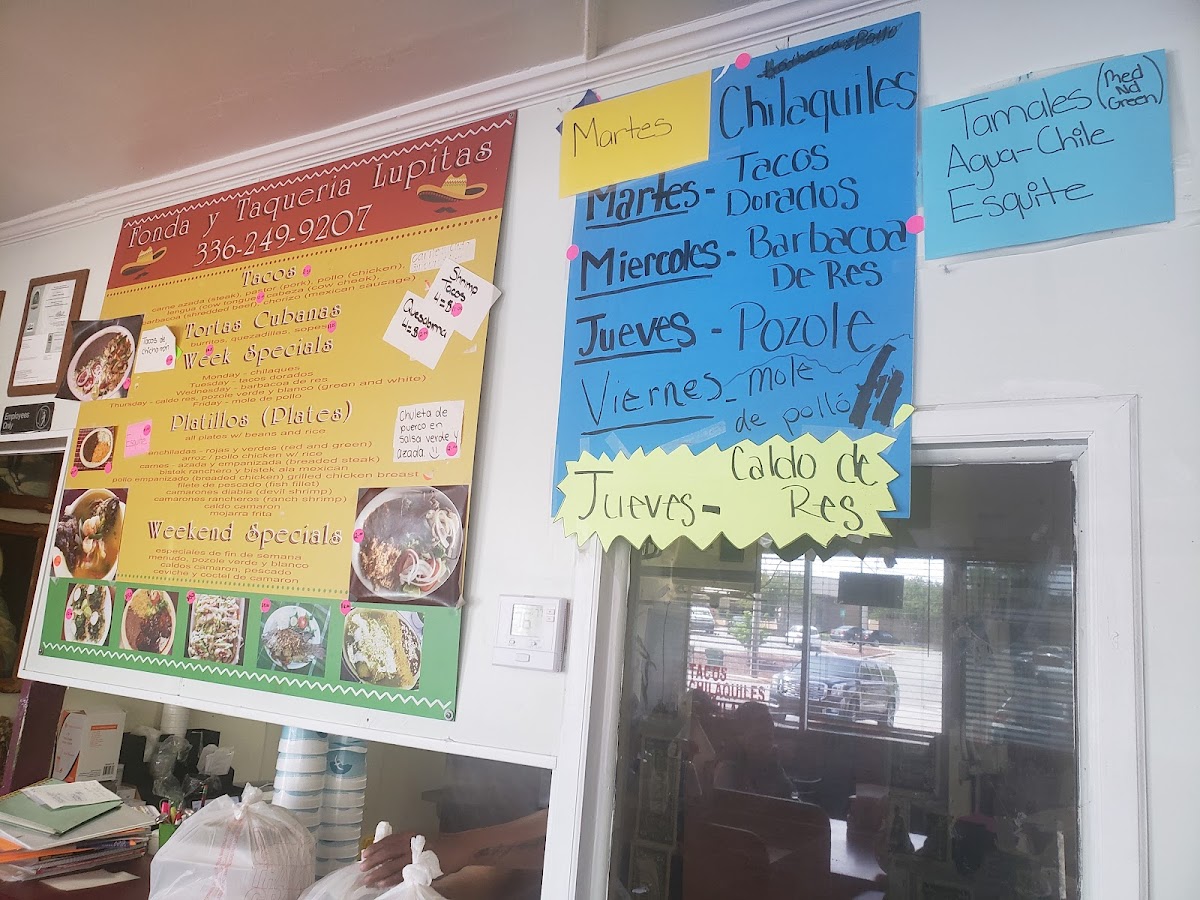 Fonda y Taqueria Lupitas
336-249-9207
Tacos
carne azada (steak), pastor (pork), pollo (chicken),
lengua (cow tongue), cabeza (cow cheek),
barbacoa (shredded beef) chorizo (mexican sausage)
Tortas Cubanas
burritos, quezadillas, sopes
Week Specials
Monday - chilaques
Tuesday - tacos dorados
Wednesday - barbacoa de res
Thursday - caldo res, pozole verde y blanco (green and white)
Friday - mole de pollo
Platillos (Plates)
all plates w/ beans and rice
enchiladas - rojas y verdes (red and green)
arroz / pollo chicken w/ rice
carnes - azada y empanizada (breaded steak)
bistek ranchero y bistek ala mexican
pollo empanizado (breaded chicken) grilled chicken breast
filete de pescado (fish fillet)
camarones diabla (devil shrimp)
camarones rancheros (ranch shrimp)
caldo camaron
mojarra frita
Weekend Specials
especiales de fin de semana
menudo, pozole verde y blanco
caldos camaron, pescado
ceviche y coctel de camaron
Tacos de
chicharron
Shrimp
Tacos
Quesabirria
Chuleta de
puerco en
salsa verde y
azada
Esquite
Employees
Only
Martes
Chilaquiles
Martes - Tacos
Dorados
Miercoles - Barbacoa
De Res
Jueves - Pozole
Viernes - mole
de pollo
Jueves - Caldo de
Res
Tamales (Red
Nd
Green)
Agua-Chile
Esquite
TACOS
CHILAQUILES